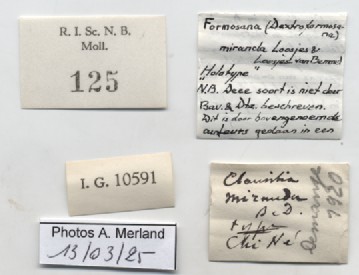 R. I. Sc. N. B.
Moll.
125
Formosana (Dextroformosa-
na)
miranda Loosjes &
Loosjes-van Bemmel
"Holotype"
N.B. Deze soort is niet door
Bav. & Dtz. beschreven.
Dit is door bovengenoemde
auteurs gedaan in een
I. G. 10591
Photos A. Merland
13/03/25
Clausilia
miranda
B. D.
type